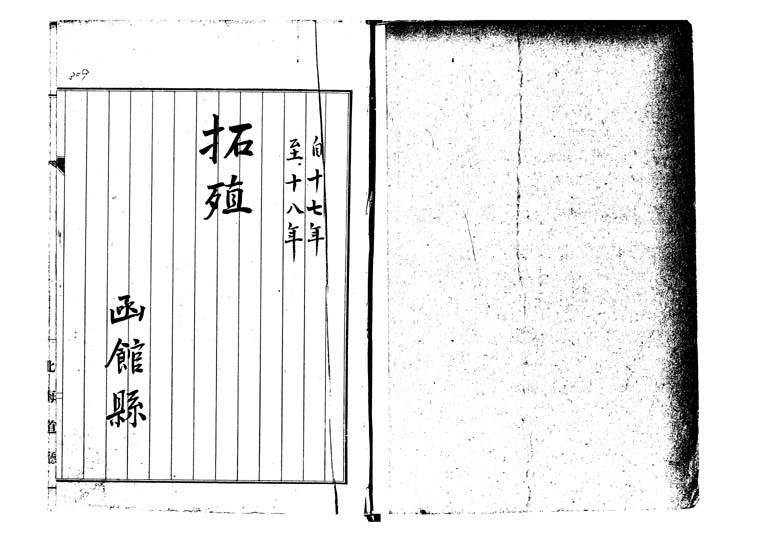 自十七年
至十八年
拓殖
函館縣
北海道廳